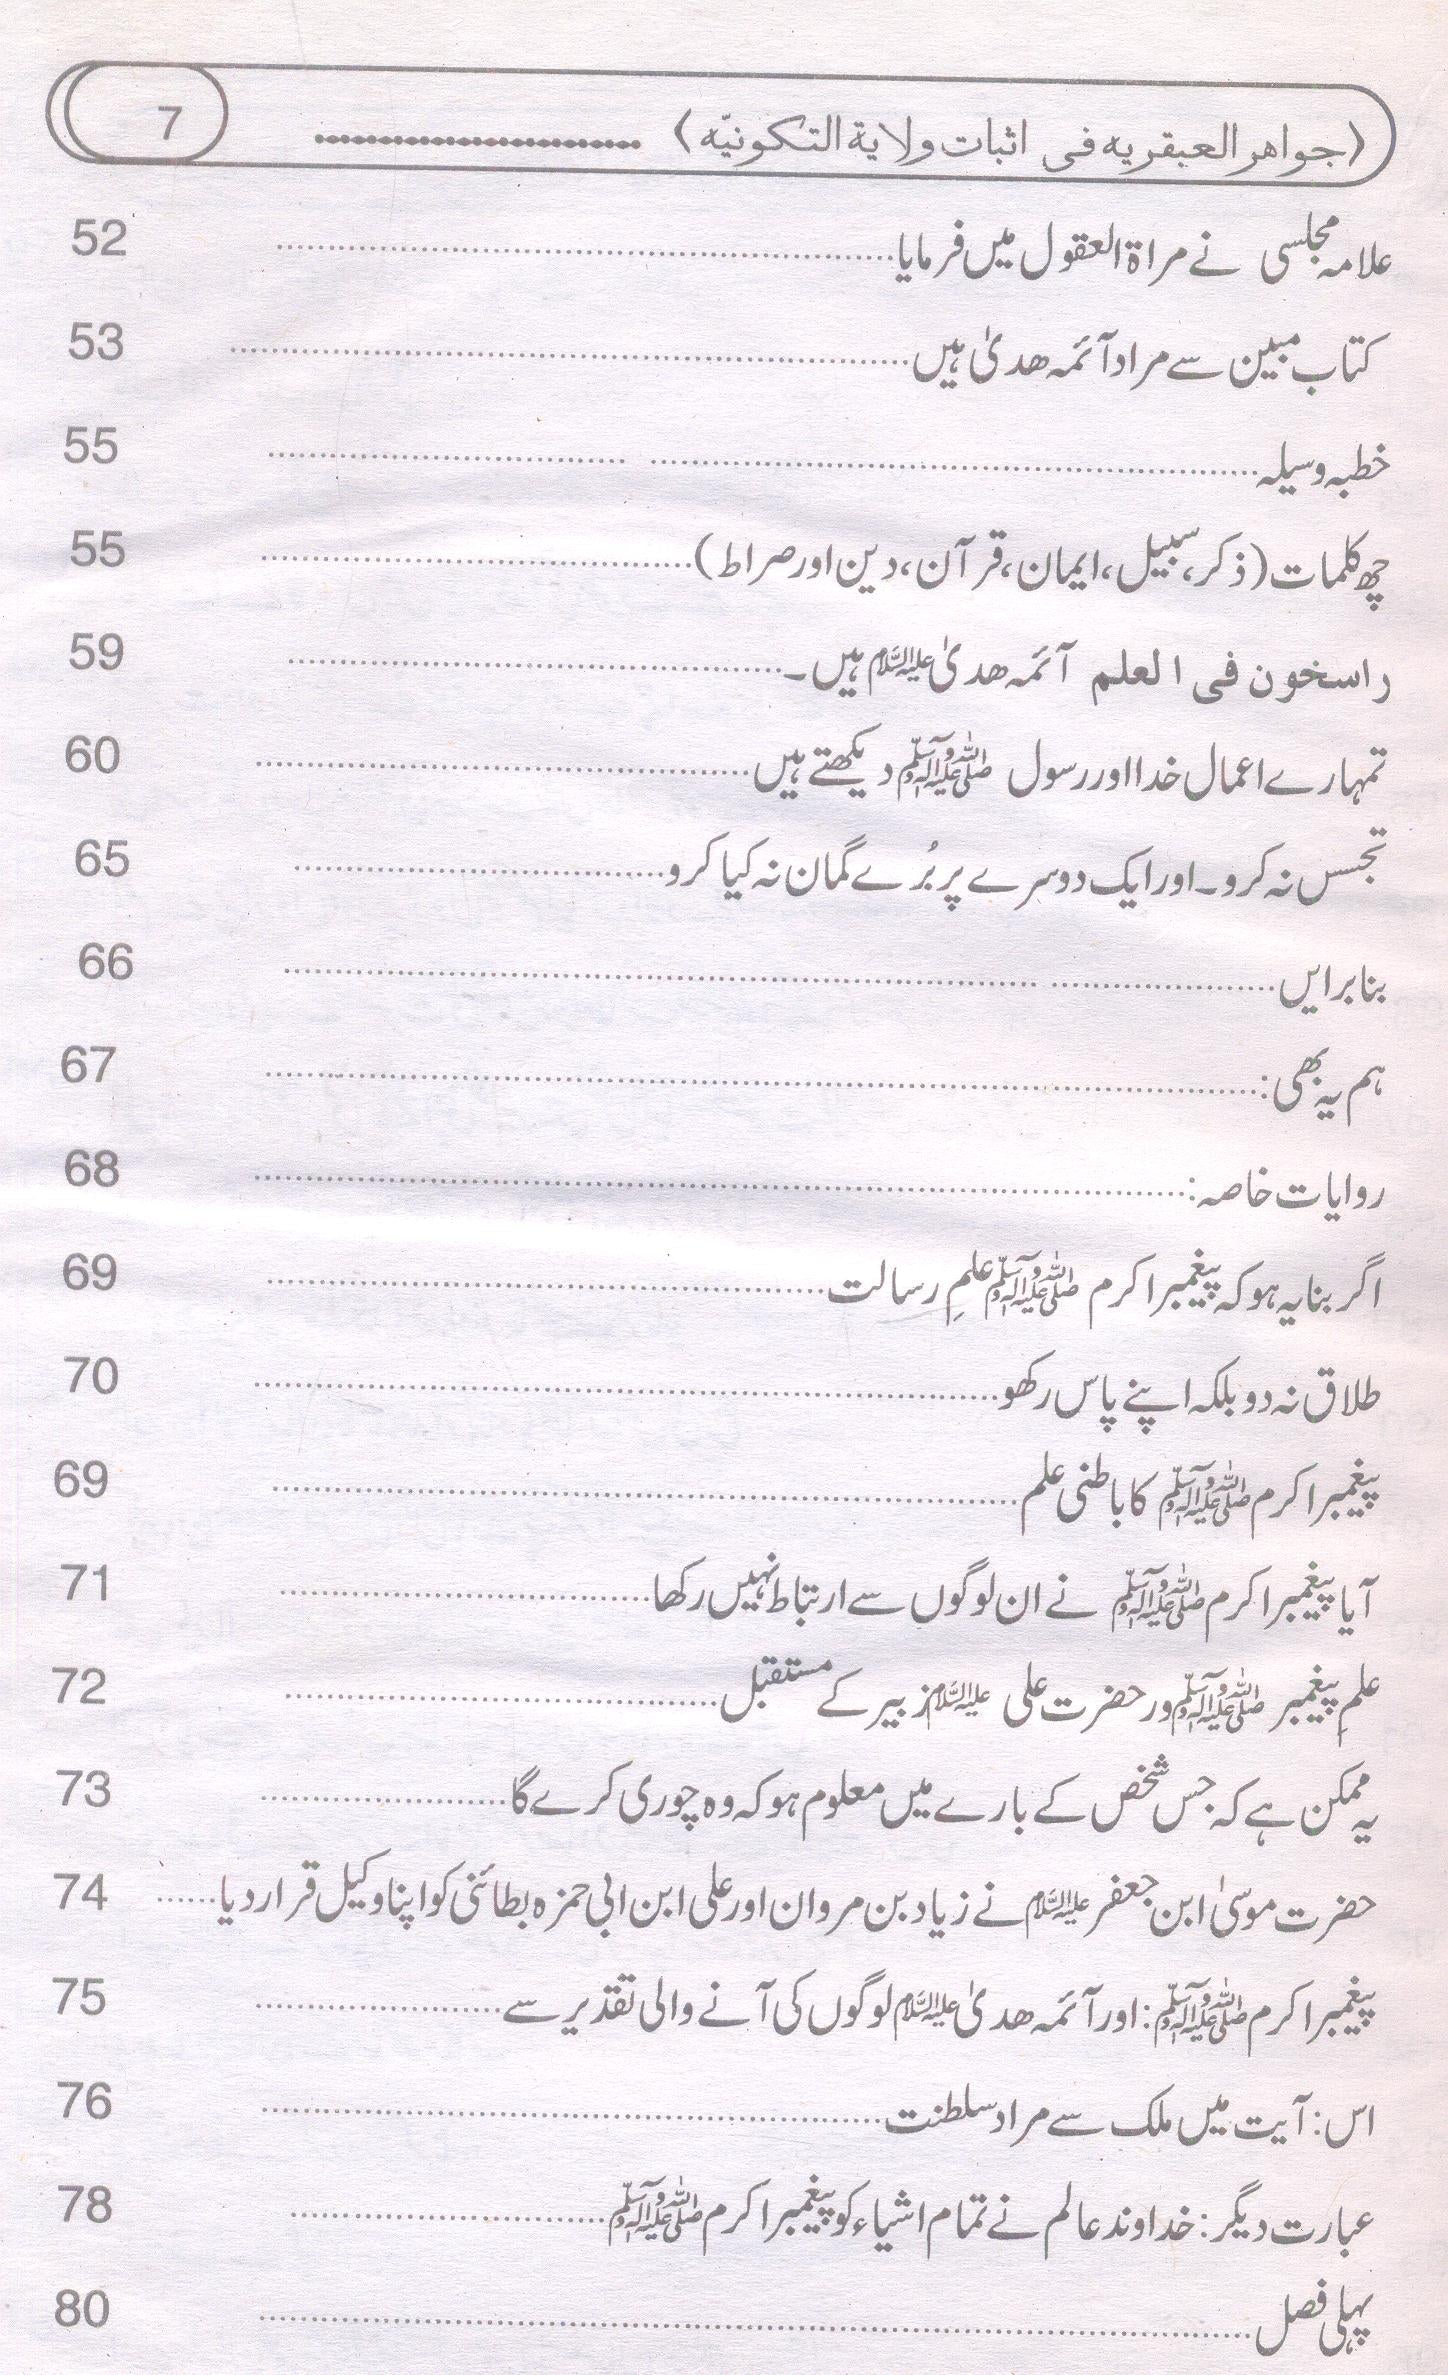 ﴿جواهر العبقریه فی اثبات ولایة التکونیّه﴾ ........................ 7
علامہ مجلسی نے مراۃ العقول میں فرمایا ........................ 52
کتاب مبین سے مراد آئمہ ھدیٰ ہیں ........................ 53
خطبہ وسیلہ ........................ 55
چھ کلمات (ذکر، سبیل، ایمان، قرآن، دین اور صراط) ........................ 55
راسخون فی العلم آئمہ ھدیٰ علیہ السلام ہیں۔ ........................ 59
تمہارے اعمال خدا اور رسول ﷺ دیکھتے ہیں ........................ 60
تجسس نہ کرو۔ اور ایک دوسرے پر بُرے گمان نہ کیا کرو ........................ 65
بنابرایں ........................ 66
ہم یہ بھی: ........................ 67
روایات خاصہ: ........................ 68
اگر بنا یہ ہو کہ پیغمبر اکرم ﷺ علمِ رسالت ........................ 69
طلاق نہ دو بلکہ اپنے پاس رکھو ........................ 70
پیغمبر اکرم ﷺ کا باطنی علم ........................ 69
آیا پیغمبر اکرم ﷺ نے ان لوگوں سے ارتباط نہیں رکھا ........................ 71
علمِ پیغمبر ﷺ ور حضرت علی علیہ السلام زبیر کے مستقبل ........................ 72
یہ ممکن ہے کہ جس شخص کے بارے میں معلوم ہو کہ وہ چوری کرے گا ........................ 73
حضرت موسیٰ ابن جعفر علیہ السلام نے زیاد بن مروان اور علی ابن ابی حمزہ بطائنی کو اپنا وکیل قرار دیا ...... 74
پیغمبر اکرم ﷺ: اور آئمہ ھدیٰ علیہ السلام لوگوں کی آنے والی تقدیر سے ........................ 75
اس: آیت میں ملک سے مراد سلطنت ........................ 76
عبارت دیگر: خداوند عالم نے تمام اشیاء کو پیغمبر اکرم ﷺ ........................ 78
پہلی فصل ........................ 80